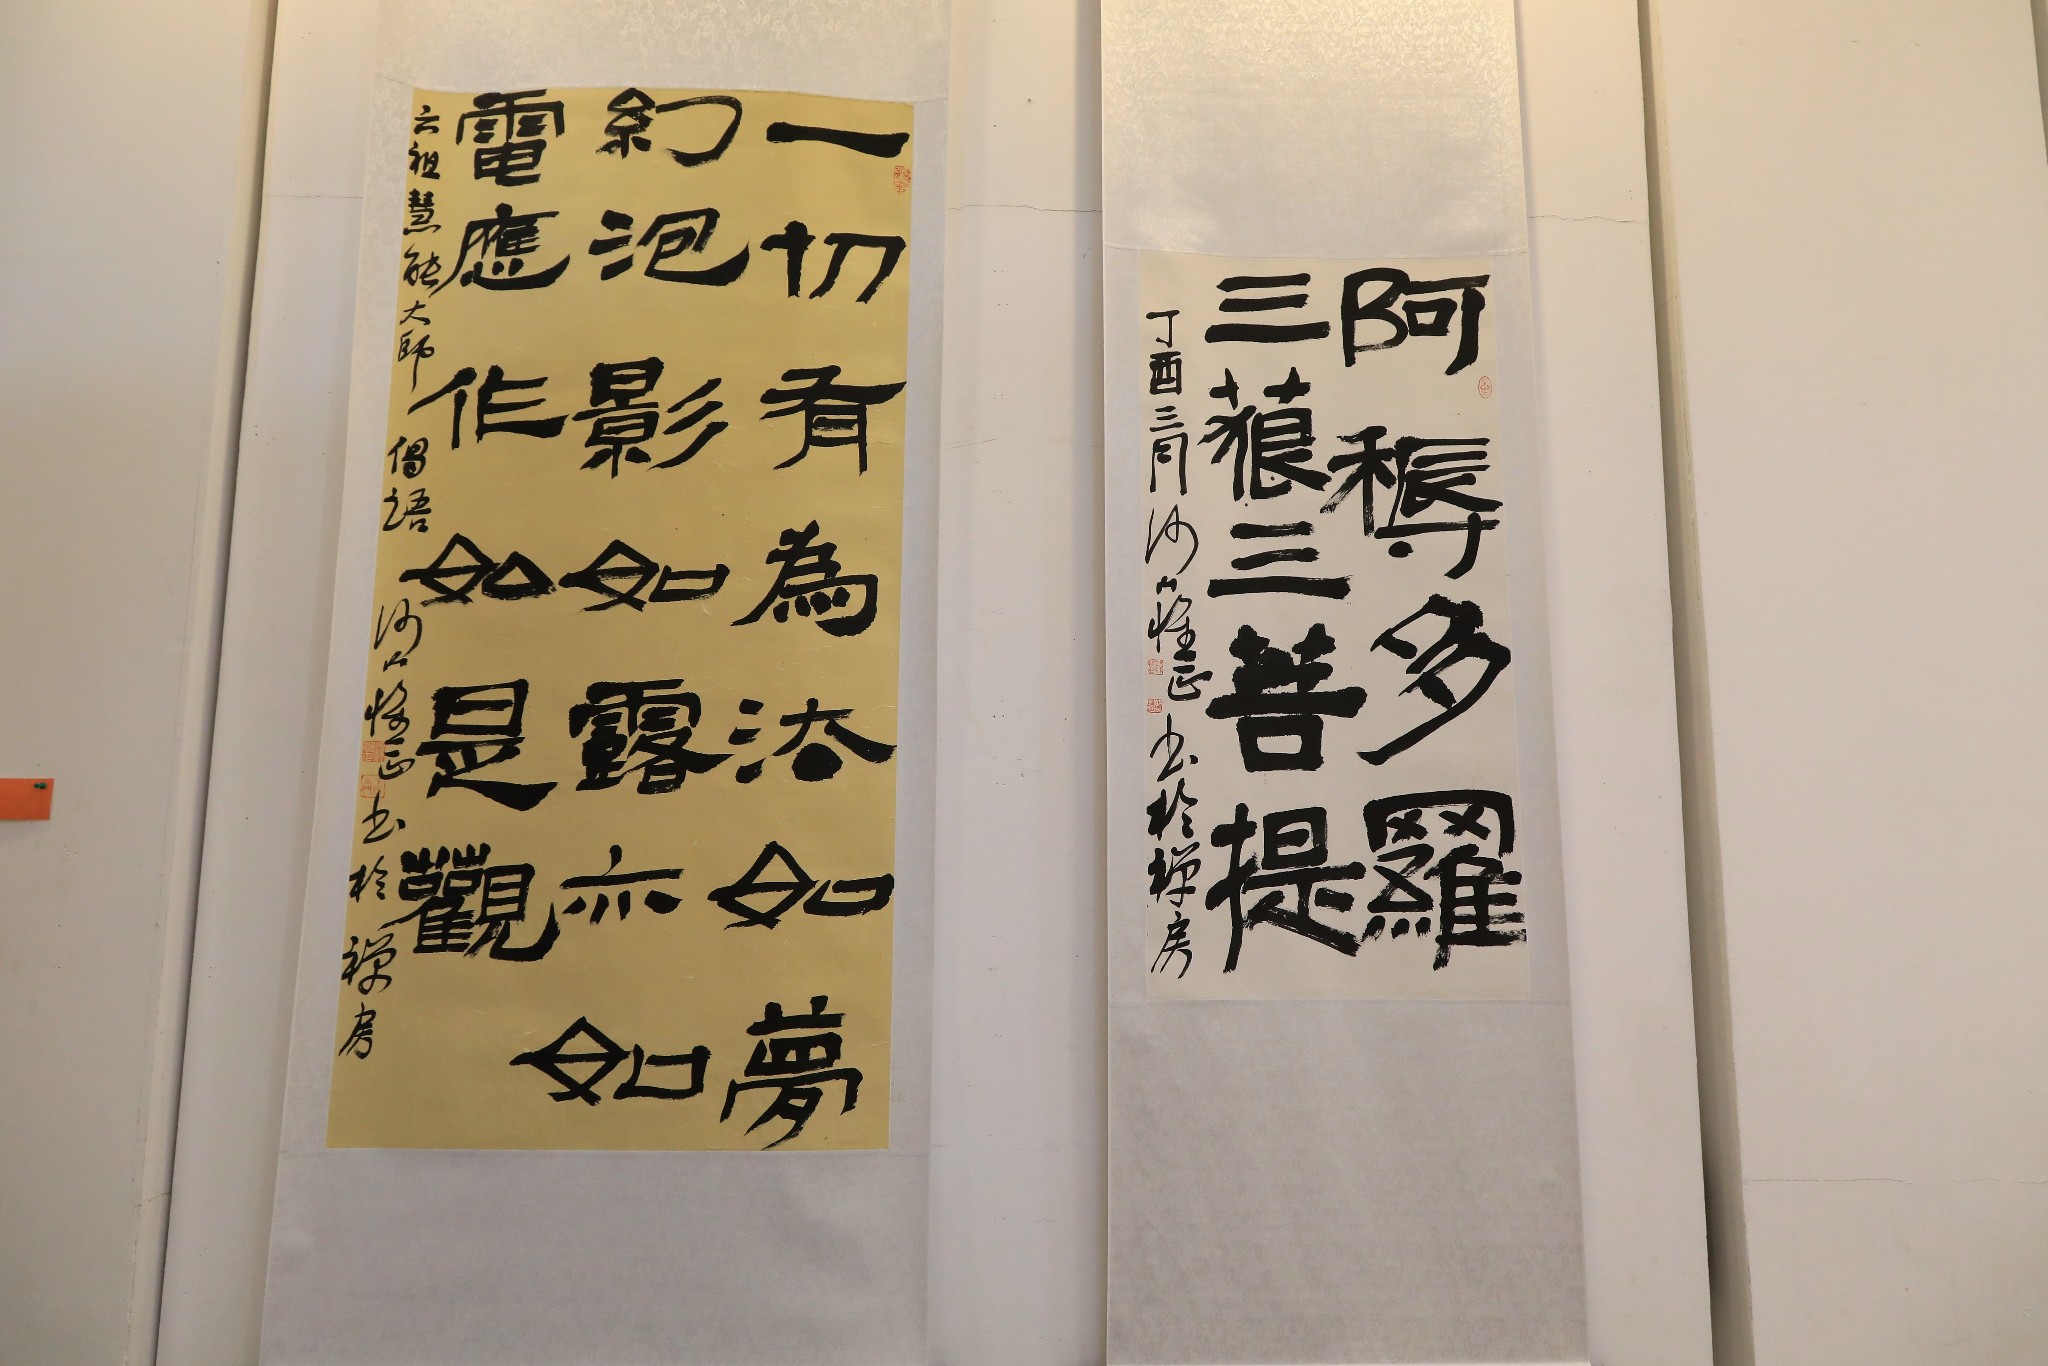 阿耨多羅
三藐三菩提
丁酉三月山正书於禅房
一切有為法如夢
幻泡影如露亦如
電應作如是觀
六祖慧能大師偈語山正书於禅房